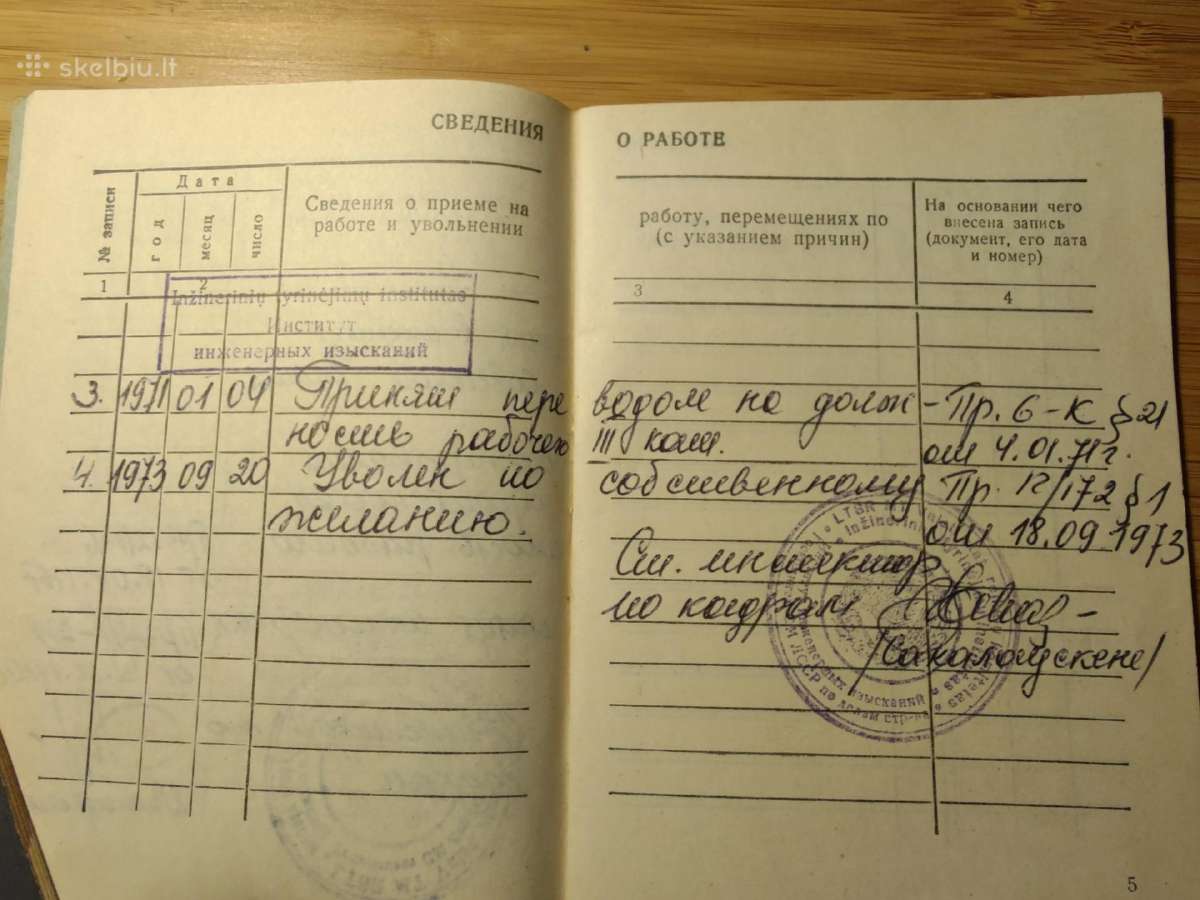 skelbiu.lt
СВЕДЕНИЯ О РАБОТЕ
№ записи
Дата
год
месяц
число
Сведения о приеме на работу, перемещениях по
работе и увольнении (с указанием причин)
На основании чего
внесена запись
(документ, его дата
и номер)
1 2 3 4
Inžinerinių tyrinėjimų institutas
Институт
инженерных изысканий
3. 1971 01 04 Принят переводом на долж- Пр. 6-К §21
ность рабочего III кат. от 4.01.71г.
4. 1973 09 20 Уволен по собственному Пр. /172 §1
желанию. от 18.09.1973
Ст. инспектор
по кадрам
/Сакалаускене/
инженерных изысканий
ЛССР по делам стр-ва
LTSR
5